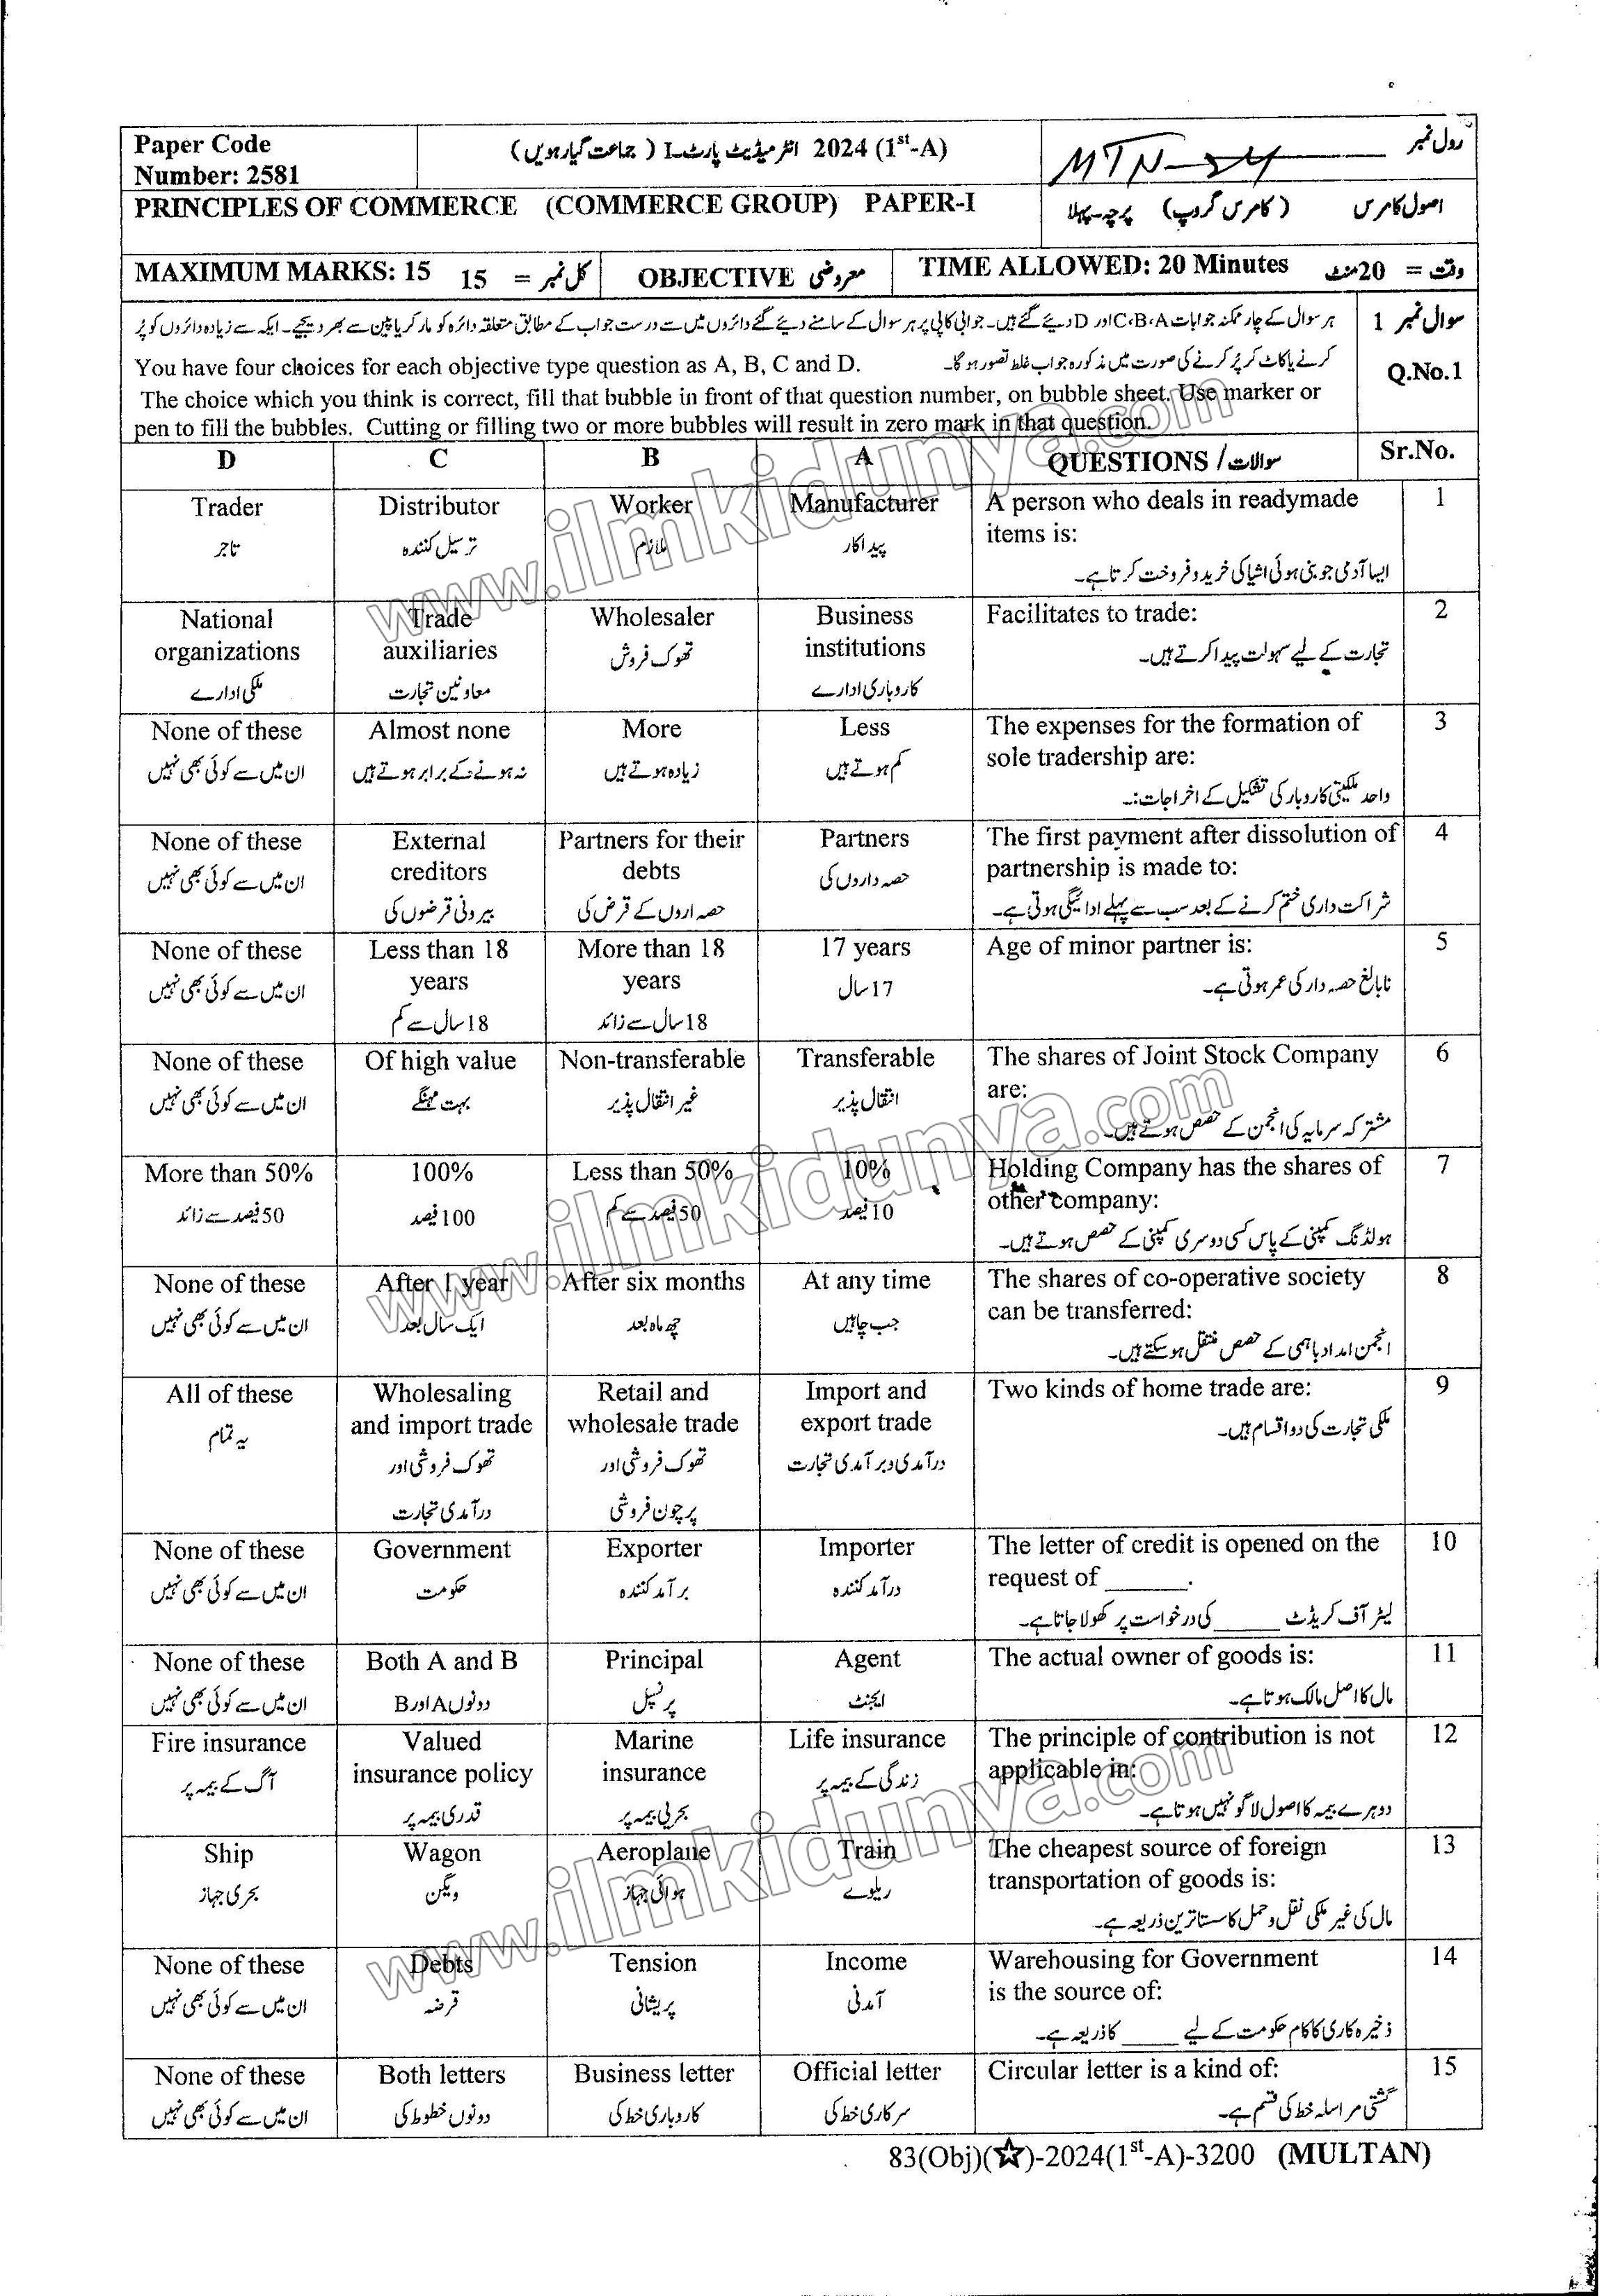 Paper Code
Number: 2581
2024 (1st-A) انٹرمیڈیٹ پارٹ-I (جماعت گیارہویں)
رول نمبر MTN-24
PRINCIPLES OF COMMERCE (COMMERCE GROUP) PAPER-I
اصول کامرس (کامرس گروپ) پرچہ-پہلا
MAXIMUM MARKS: 15 15 = کل نمبر
OBJECTIVE معروضی
TIME ALLOWED: 20 Minutes وقت = 20 منٹ
سوال نمبر 1 ہر سوال کے چار ممکنہ جوابات C،B،A اور D دیئے گئے ہیں۔ جوابی کاپی پر ہر سوال کے سامنے دیئے گئے دائروں میں سے درست جواب کے مطابق متعلقہ دائرہ کو مارکر یا پین سے بھر دیجیے۔ ایک سے زیادہ دائروں کو پُر
کرنے یا کاٹ کر پُر کرنے کی صورت میں مذکورہ جواب غلط تصور ہو گا۔
Q.No.1 You have four choices for each objective type question as A, B, C and D.
The choice which you think is correct, fill that bubble in front of that question number, on bubble sheet. Use marker or
pen to fill the bubbles. Cutting or filling two or more bubbles will result in zero mark in that question.
D C B A QUESTIONS / سوالات Sr.No.
Trader Distributor Worker Manufacturer A person who deals in readymade 1
items is:
تاجر ترسیل کنندہ ملازم پیداکار
ایسا آدمی جو بنی ہوئی اشیا کی خرید و فروخت کرتا ہے۔
National Trade Wholesaler Business Facilitates to trade: 2
organizations auxiliaries تھوک فروش institutions تجارت کے لیے سہولت پیدا کرتے ہیں۔
ملکی ادارے معاونین تجارت کاروباری ادارے
None of these Almost none More Less The expenses for the formation of 3
sole tradership are:
ان میں سے کوئی بھی نہیں نہ ہونے کے برابر ہوتے ہیں زیادہ ہوتے ہیں کم ہوتے ہیں
واحد ملکیتی کاروبار کی تشکیل کے اخراجات:۔
None of these External Partners for their Partners The first payment after dissolution of 4
creditors debts partnership is made to:
ان میں سے کوئی بھی نہیں بیرونی قرضوں کی حصہ داروں کے قرض کی حصہ داروں کی
شراکت داری ختم کرنے کے بعد سب سے پہلے ادائیگی ہوتی ہے۔
None of these Less than 18 More than 18 17 years Age of minor partner is: 5
years years
ان میں سے کوئی بھی نہیں 18 سال سے کم 18 سال سے زائد 17 سال نابالغ حصہ دار کی عمر ہوتی ہے۔
None of these Of high value Non-transferable Transferable The shares of Joint Stock Company 6
are:
ان میں سے کوئی بھی نہیں بہت مہنگے غیر انتقال پذیر انتقال پذیر
مشترکہ سرمایہ کی انجمن کے حصص ہوتے ہیں۔
More than 50% 100% Less than 50% 10% Holding Company has the shares of 7
other company:
50 فیصد سے زائد 100 فیصد 50 فیصد سے کم 10 فیصد
ہولڈنگ کمپنی کے پاس کسی دوسری کمپنی کے حصص ہوتے ہیں۔
None of these After 1 year After six months At any time The shares of co-operative society 8
can be transferred:
ان میں سے کوئی بھی نہیں ایک سال بعد چھ ماہ بعد جب چاہیں
انجمن امداد باہمی کے حصص منتقل ہو سکتے ہیں۔
All of these Wholesaling Retail and Import and Two kinds of home trade are: 9
and import trade wholesale trade export trade
یہ تمام تھوک فروشی اور تھوک فروشی اور درآمدی و برآمدی تجارت ملکی تجارت کی دو اقسام ہیں۔
درآمدی تجارت پرچون فروشی
None of these Government Exporter Importer The letter of credit is opened on the 10
request of ______.
ان میں سے کوئی بھی نہیں حکومت برآمد کنندہ درآمد کنندہ
لیٹر آف کریڈٹ _____ کی درخواست پر کھولا جاتا ہے۔
None of these Both A and B Principal Agent The actual owner of goods is: 11
ان میں سے کوئی بھی نہیں دونوں A اور B پرنسپل ایجنٹ مال کا اصل مالک ہوتا ہے۔
Fire insurance Valued Marine Life insurance The principle of contribution is not 12
insurance policy insurance applicable in:
آگ کے بیمہ پر قدری بیمہ پر بحری بیمہ پر زندگی کے بیمہ پر
دوہرے بیمہ کا اصول لاگو نہیں ہوتا ہے۔
Ship Wagon Aeroplane Train The cheapest source of foreign 13
transportation of goods is:
بحری جہاز ویگن ہوائی جہاز ریلوے
مال کی غیر ملکی نقل و حمل کا سستا ترین ذریعہ ہے۔
None of these Debts Tension Income Warehousing for Government 14
is the source of:
ان میں سے کوئی بھی نہیں قرضہ پریشانی آمدنی
ذخیرہ کاری کا کام حکومت کے لیے _____ کا ذریعہ ہے۔
None of these Both letters Business letter Official letter Circular letter is a kind of: 15
ان میں سے کوئی بھی نہیں دونوں خطوط کی کاروباری خط کی سرکاری خط کی گشتی مراسلہ خط کی قسم ہے۔
83(Obj)(☆)-2024(1st-A)-3200 (MULTAN)
www.ilmkidunya.com
www.ilmkidunya.com
www.ilmkidunya.com